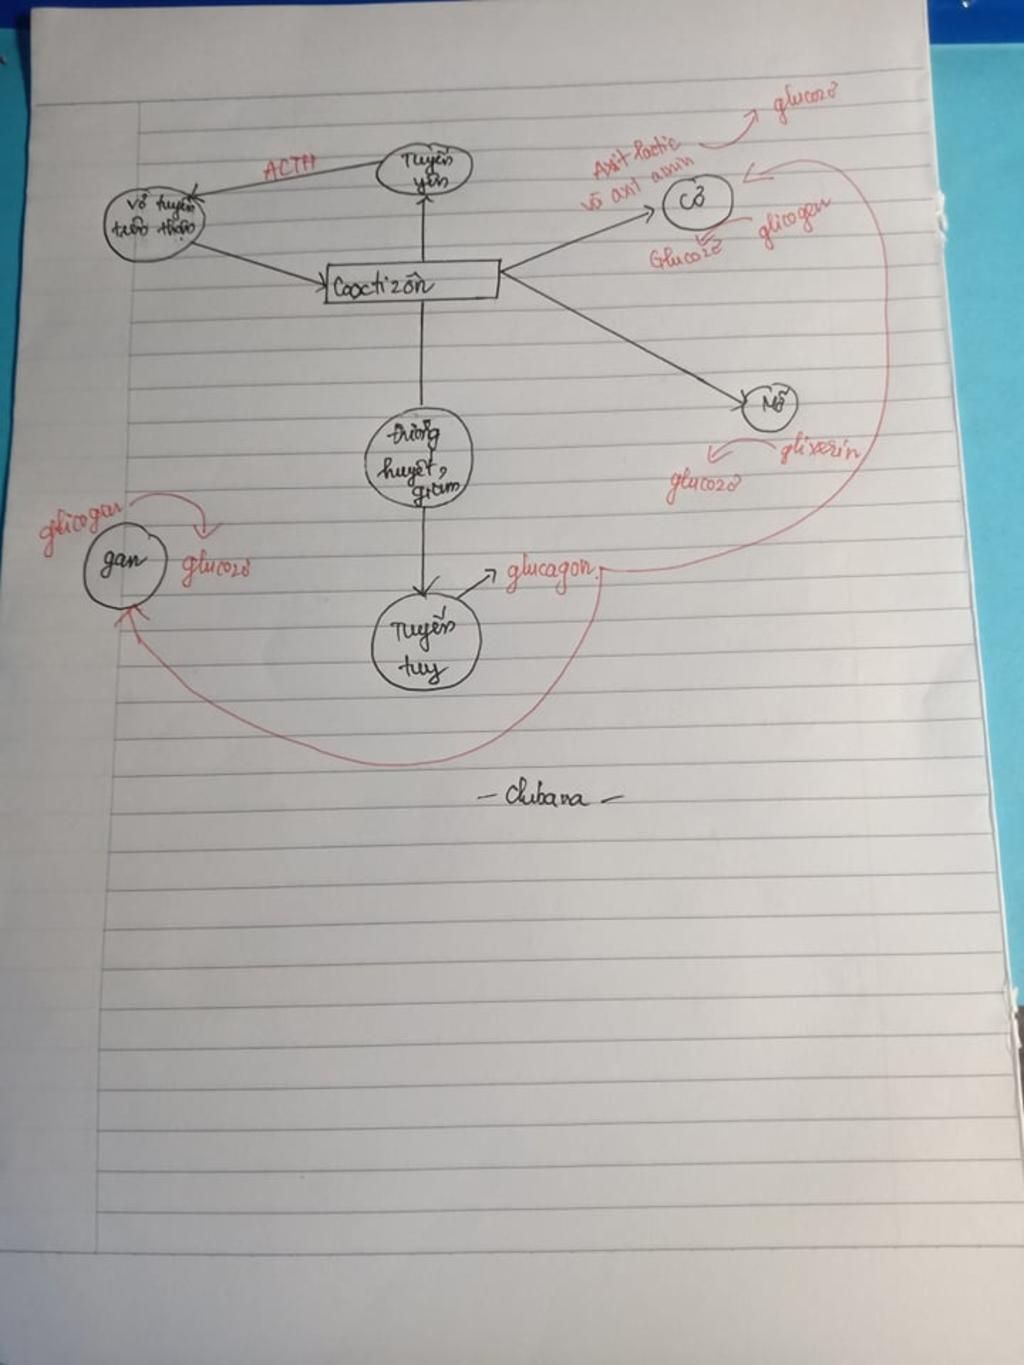 glucozơ
ACTH
Tuyến
yên
Axit lactic
và axit amin
Vỏ tuyến
trên thận
Cơ
glicogen
Glucozơ
Cooctizôn
Mỡ
đường
huyết
giảm
glixerin
glucozơ
glicogen
gan
glucozơ
glucagon
Tuyến
tuỵ
- Chibana -